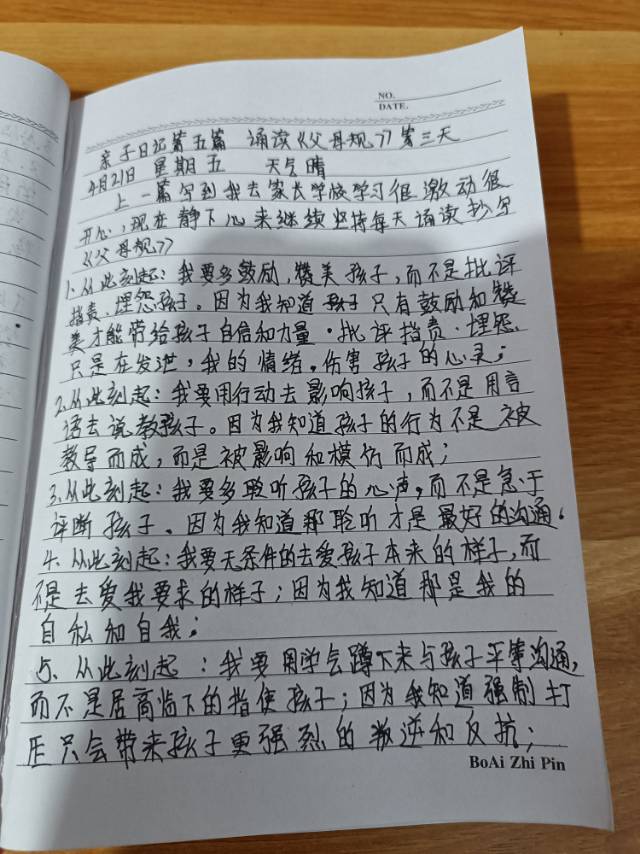 NO.
DATE.
亲子日记第五篇 诵读《父母规》第三天
4月21日 星期五 天气晴
上一篇写到我去家长学校学习很激动很
开心,现在静下心来继续坚持每天诵读抄写
《父母规》
1.从此刻起:我要多鼓励,赞美孩子,而不是批评
指责、埋怨孩子。因为我知道孩子只有鼓励和赞
美才能带给孩子自信和力量。批评指责、埋怨,
只是在发泄,我的情绪。伤害孩子的心灵;
2.从此刻起:我要用行动去影响孩子,而不是用言
语去说教孩子。因为我知道孩子的行为不是被
教导而成,而是被影响和模仿而成;
3.从此刻起:我要多聆听孩子的心声,而不是急于
评断孩子、因为我知道那聆听才是最好的沟通。
4.从此刻起:我要无条件的去爱孩子本来的样子,而
不是去爱我要求的样子;因为我知道那是我的
自私和自我;
5、从此刻起:我要用学会蹲下来与孩子平等沟通,
而不是居高临下的指使孩子;因为我知道强制打
压只会带来孩子更强烈的叛逆和反抗;
BoAi Zhi Pin